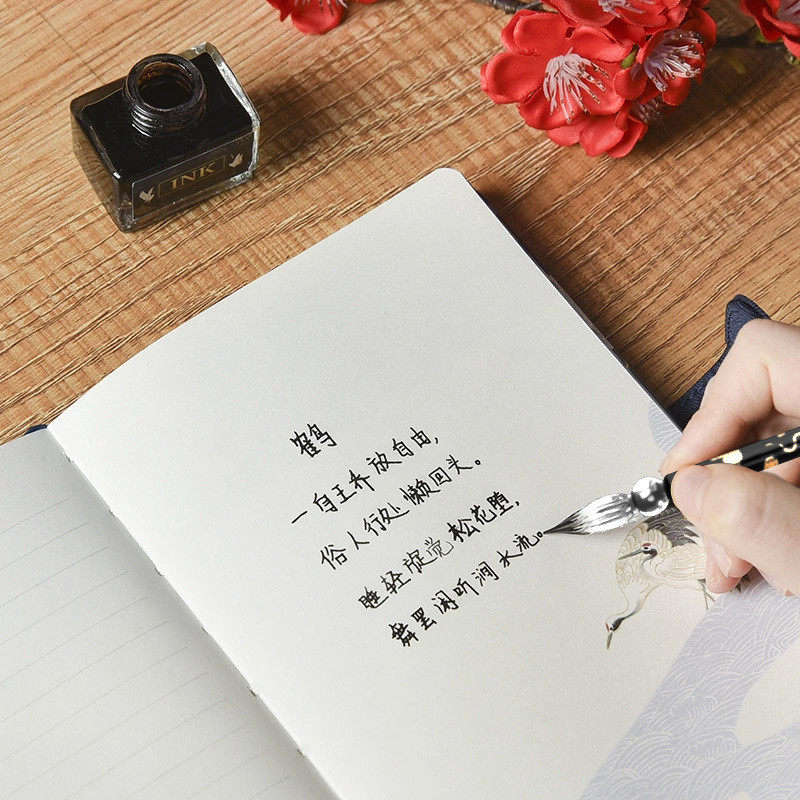 INK
鹤
一自王乔放自由,
俗人行处懒回头。
睡轻旋觉松花堕,
舞罢闲听涧水流。